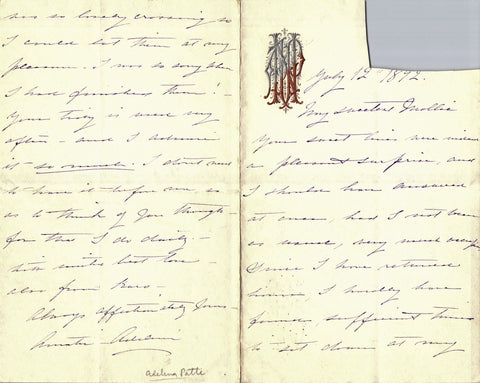 July 12 1892.
My sweetest Mollie
Your sweet lines were indeed
a pleasant surprise, and
I should have answered
at once, had I not been
as usual, very much occup
Since I have returned
home, I hardly have
found sufficient time
to sit down at my
was so lovely crossing so
I could eat them at my
pleasure. I was so sorry when
I had finished them! -
Your tray is used very
often - and I admire
it - so much. I don't need
to have it before me, so
as to think of you though -
for that I do daily -
with united best love -
also from
Always affectionately yours -
Adelina
Adelina Patti